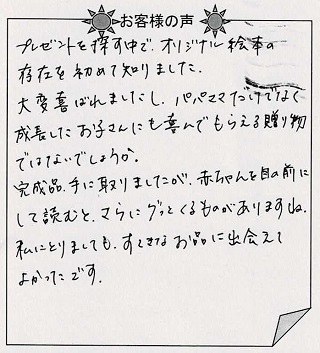 お客様の声
プレゼントを探す中で、オリジナル絵本の
存在を初めて知りました。
大変喜ばれましたし、パパママだけでなく
成長したお子さんにも喜んでもらえる贈り物
ではないでしょうか。
完成品、手に取りましたが、赤ちゃんを目の前に
して読むと、さらにグッとくるものがありますね。
私にとりましても、すてきなお品に出会えて
よかったです。